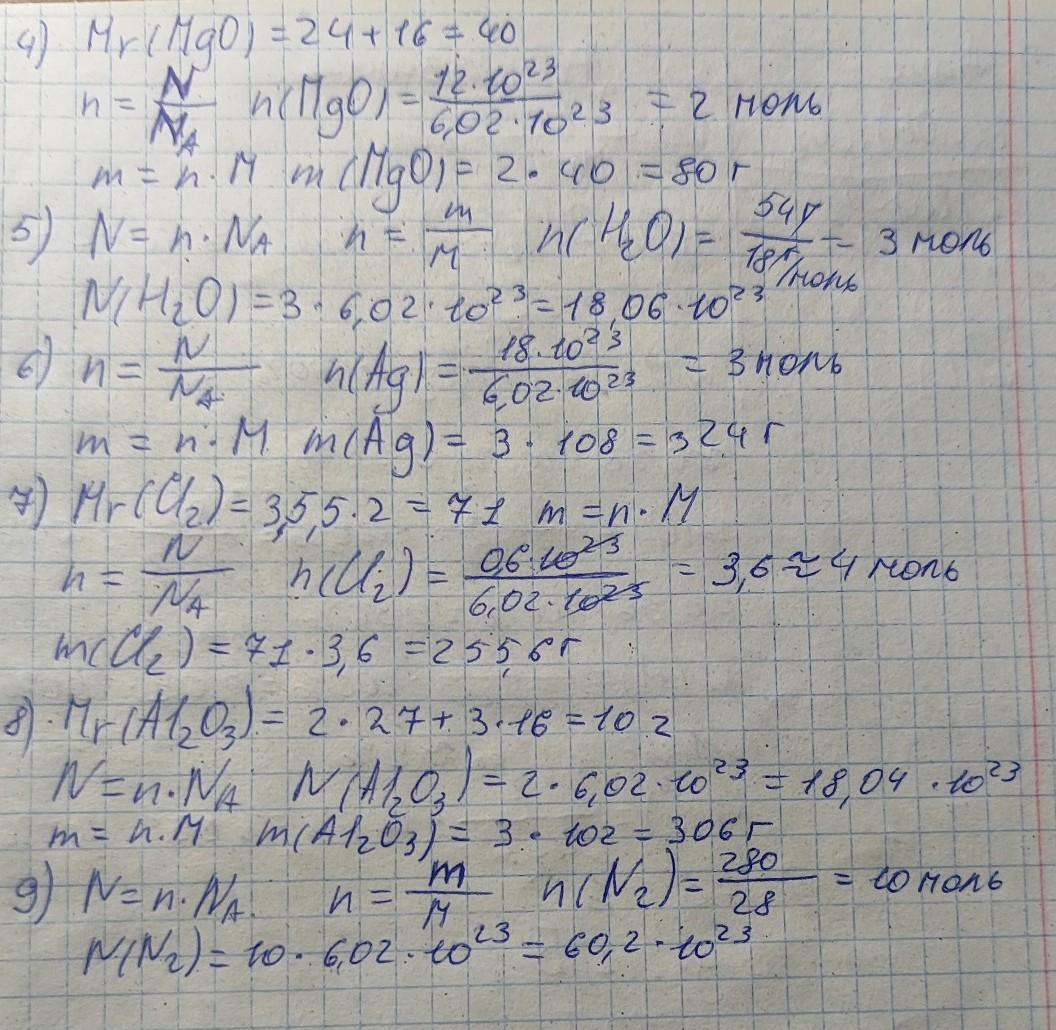 4) Mr(MgO) = 24 + 16 = 40
n = N/N_A n(MgO) = 12·10²³/6,02·10²³ = 2 моль
m = n·M m(MgO) = 2·40 = 80 г
5) N = n·N_A n = m/M n(H₂O) = 54г/18г/моль = 3 моль
N(H₂O) = 3·6,02·10²³ = 18,06·10²³
6) n = N/N_A n(Ag) = 18·10²³/6,02·10²³ = 3 моль
m = n·M m(Ag) = 3·108 = 324 г
7) Mr(Cl₂) = 35,5·2 = 71 m = n·M
n = N/N_A n(Cl₂) = 0,6·10²³/6,02·10²³ = 3,6 ≈ 4 моль
m(Cl₂) = 71·3,6 = 255,6г
8) Mr(Al₂O₃) = 2·27 + 3·16 = 102
N = n·N_A N(Al₂O₃) = 2·6,02·10²³ = 18,04·10²³
m = n.M m(Al₂O₃) = 3·102 = 306 г
9) N = n·N_A. n = m/M n(N₂) = 280/28 = 10 моль
N(N₂) = 10·6,02·10²³ = 60,2·10²³